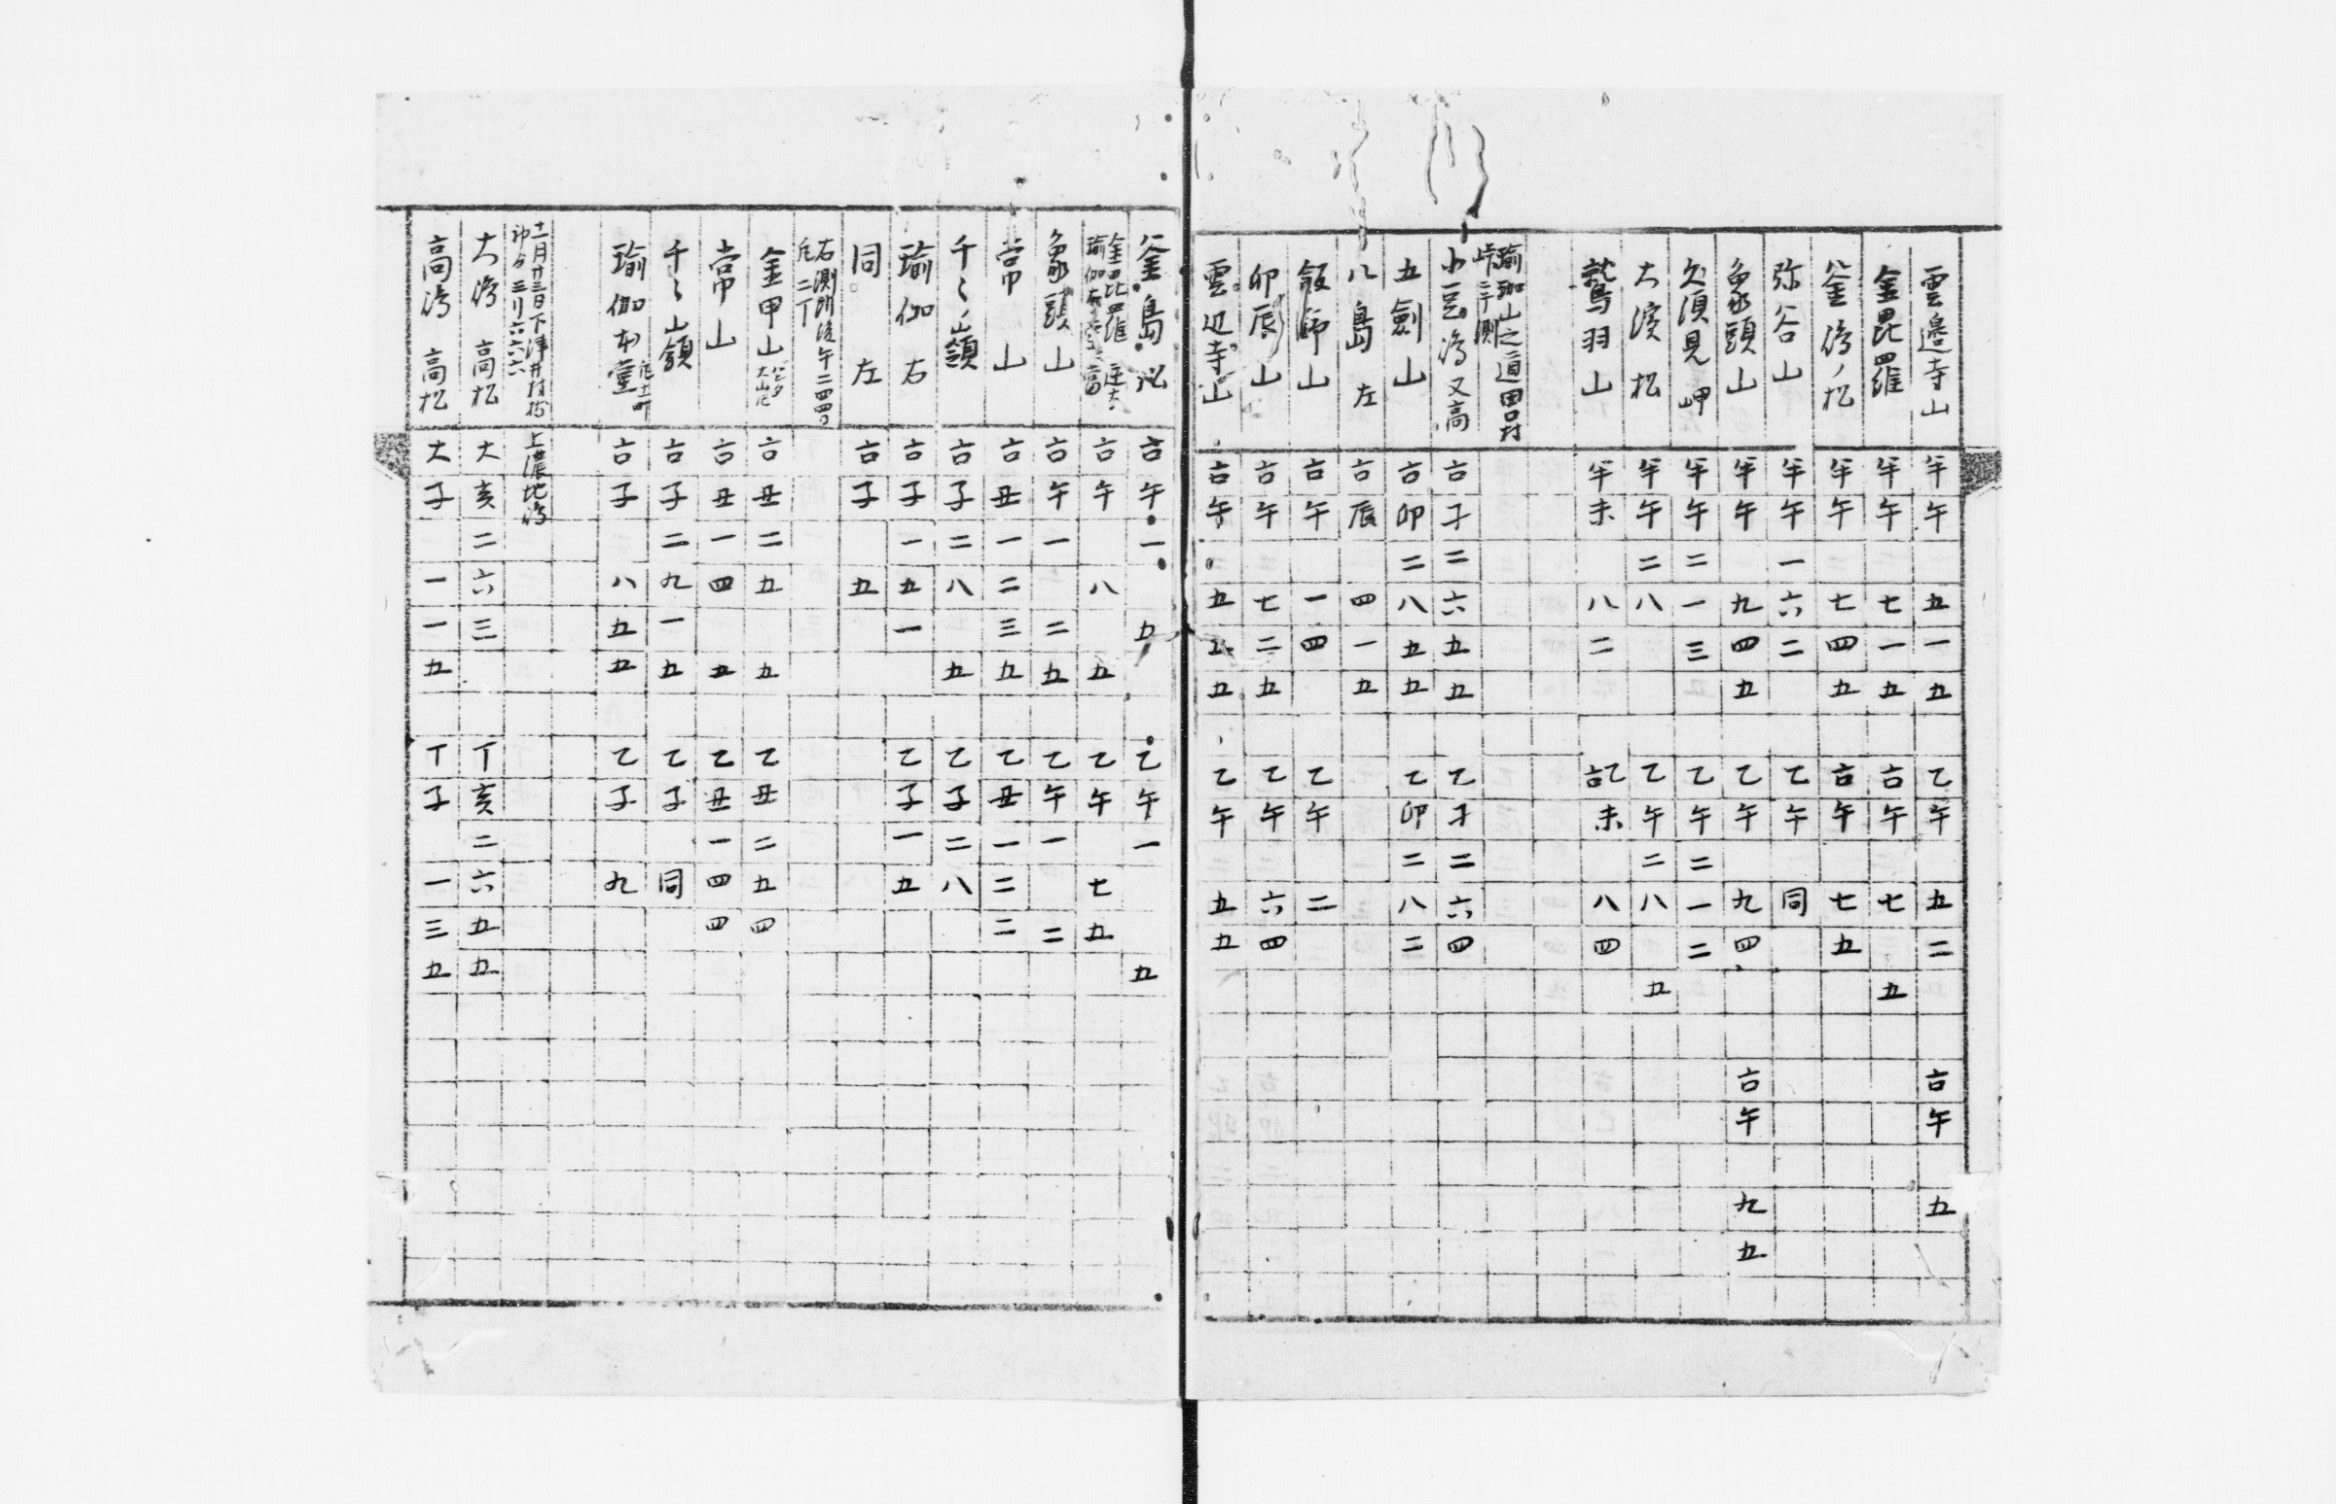 雲邉寺山 午午五一五 乙午五二 古午五
金毘羅 午午七一五 古午七五
釜島ノ松 午午七四五 古午七五
弥谷山 午午一六二 乙午同
象頭山 午午九四五 乙午九四 古午九五
久須見岬 午午二一三 乙午二一二
大濱松 午午二八 乙午二八五
鷲羽山 午未八二 乙古未八四
瑜珈山之道田口村
峠ニ于測
小豆島又高 古子二六五五 乙子二六四
五劔山 古卯二八五五 乙卯二八二
八島左 古辰四一五
飯野山 古午一四 乙午二
卯辰山 古午七二五 乙午六四
雲辺寺山 古午五五五 乙午五五
釜島 古午一五 乙午一五
金毘羅
古午八五 乙午七五
象頭山 古午一二五 乙午一二
常山 古丑一二三五 乙丑一二二
千々山嶺 古子二八五 乙子二八
瑜伽右 古子一五一 乙子一五
同左 古子五
右測所後午二四四
凡二丁
金甲山 古丑二五五 乙丑二五四
常山 古丑一四五 乙丑一四四
千々山嶺 古子二九一五 乙子同
瑜伽本堂 古子八五五 乙子九
十一月廿三日下津井村 上濃地島
大島高松 大亥二六三 丁亥二六五五
高島高松 大子一一五 丁子一三五